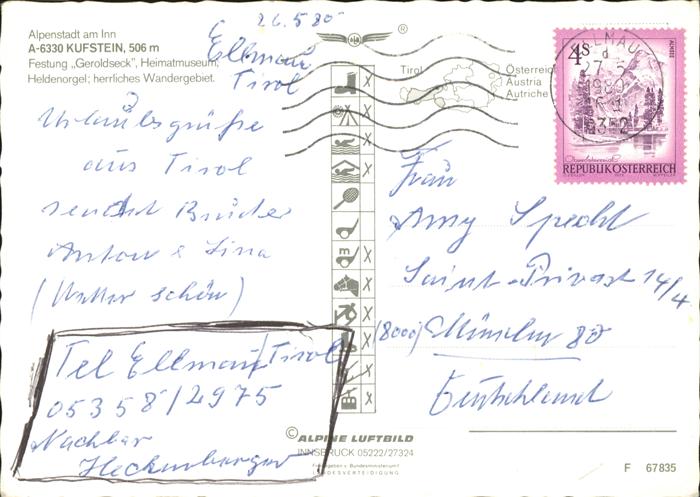 26.5.80
Ellmau
Tirol
Alpenstadt am Inn
A-6330 KUFSTEIN, 506 m
Festung „Geroldseck", Heimatmuseum,
Heldenorgel; herrliches Wandergebiet.
Urlaubsgrüße
aus Tirol
sendet Bruder
Anton & Lina
(Wetter schön)
Tel Ellmau/Tirol
05358/2975
Nachbar
Heckenberger
®
Tirol
Österreich
Austria
Autriche
4S
REPUBLIK ÖSTERREICH
1980
6352
Frau
Amy Specht
Saint-Privast 14/4
(8000) München 80
Deutschland
© ALPINE LUFTBILD
INNSBRUCK 05222/27324
Freigegeben v. Bundesministerium f.
LANDESVERTEIDIGUNG
F 67835